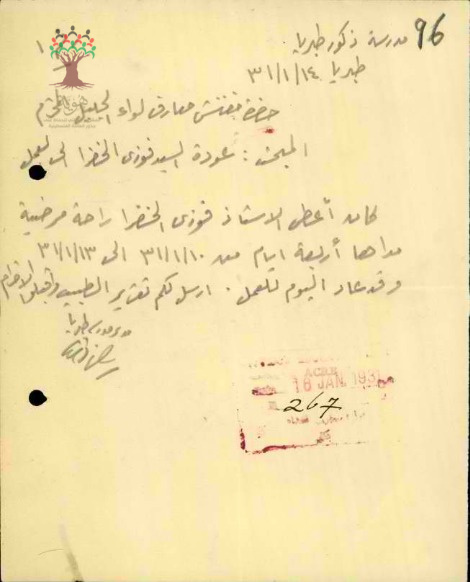 96
مدرسة ذكور طبريا
طبريا ٣١/١/١٤
حضرة مفتش معارف لواء الجليل المحترم
المبحث: عودة السيد فوزي الخضرا الى العمل
كان أعطي الاستاذ فوزي الخضرا راحة مرضية
مداها أربعة ايام من ٣١/١/١٠ الى ٣١/١/١٣
وقد عاد اليوم للعمل. ارسل لكم تقرير الطبيب واقبلوا الاحترام
مدير مدرسة طبريا
16 JAN 1931
267